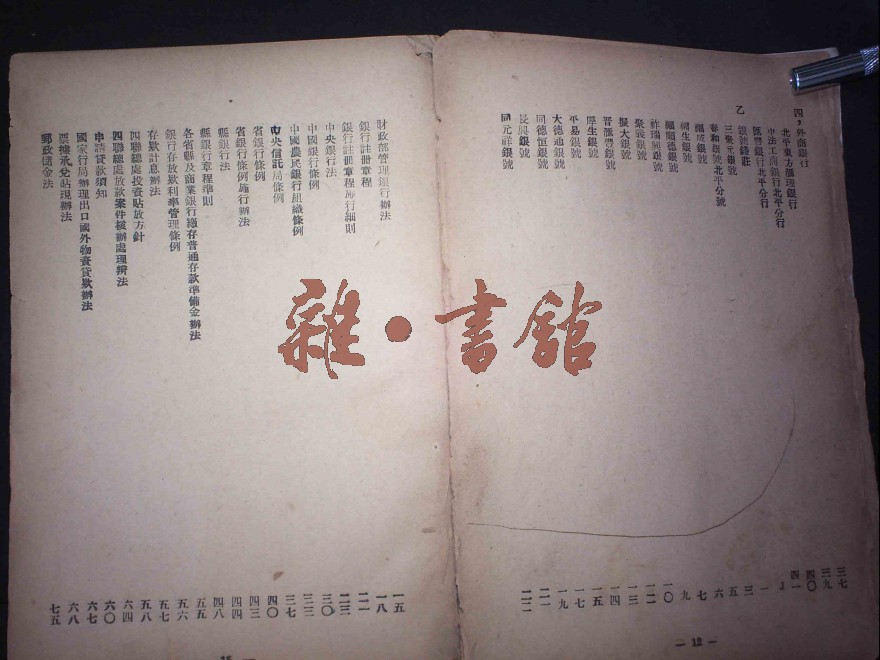 四，外商銀行
北平東方匯理銀行 三七
中法工商銀行北平分行 三九
匯豐銀行北平分行 四〇
乙
銀號錢莊
三聚元銀號
春和銀號北平分號
福成銀號
福生銀號
福順德銀號
祥瑞興銀號
聚義銀號
擬大銀號
晋滙豐銀號
厚生銀號
平易銀號
大德通銀號
同德恒銀號
長興銀號
同元祥銀號
— 12 —
財政部管理銀行辦法 一五
銀行註冊章程 一八
銀行註冊章程施行細則 二一
中央銀行法 二三
中國銀行條例 三〇
中國農民銀行組織條例 三三
中央信託局條例 三七
省銀行條例 四〇
省銀行條例施行辦法 四三
縣銀行法 四四
縣銀行章程準則 四八
各省縣及商業銀行繳存普通存款準備金辦法 五五
銀行存放款利率管理條例 五六
存款計息辦法 五七
四聯總處投資貼放方針 五八
四聯總處放款案件核辦處理辦法 六四
申請貸款須知 六〇
國家行局辦理出口國外物資貸款辦法 六七
票據承兌貼現辦法 六八
郵政儲金法 七五
雜·書館